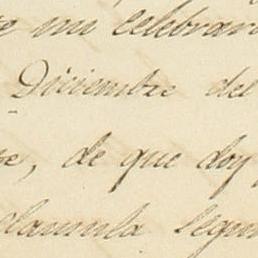 mi celebrar
Diciembre del
, de que doy
clausula segun